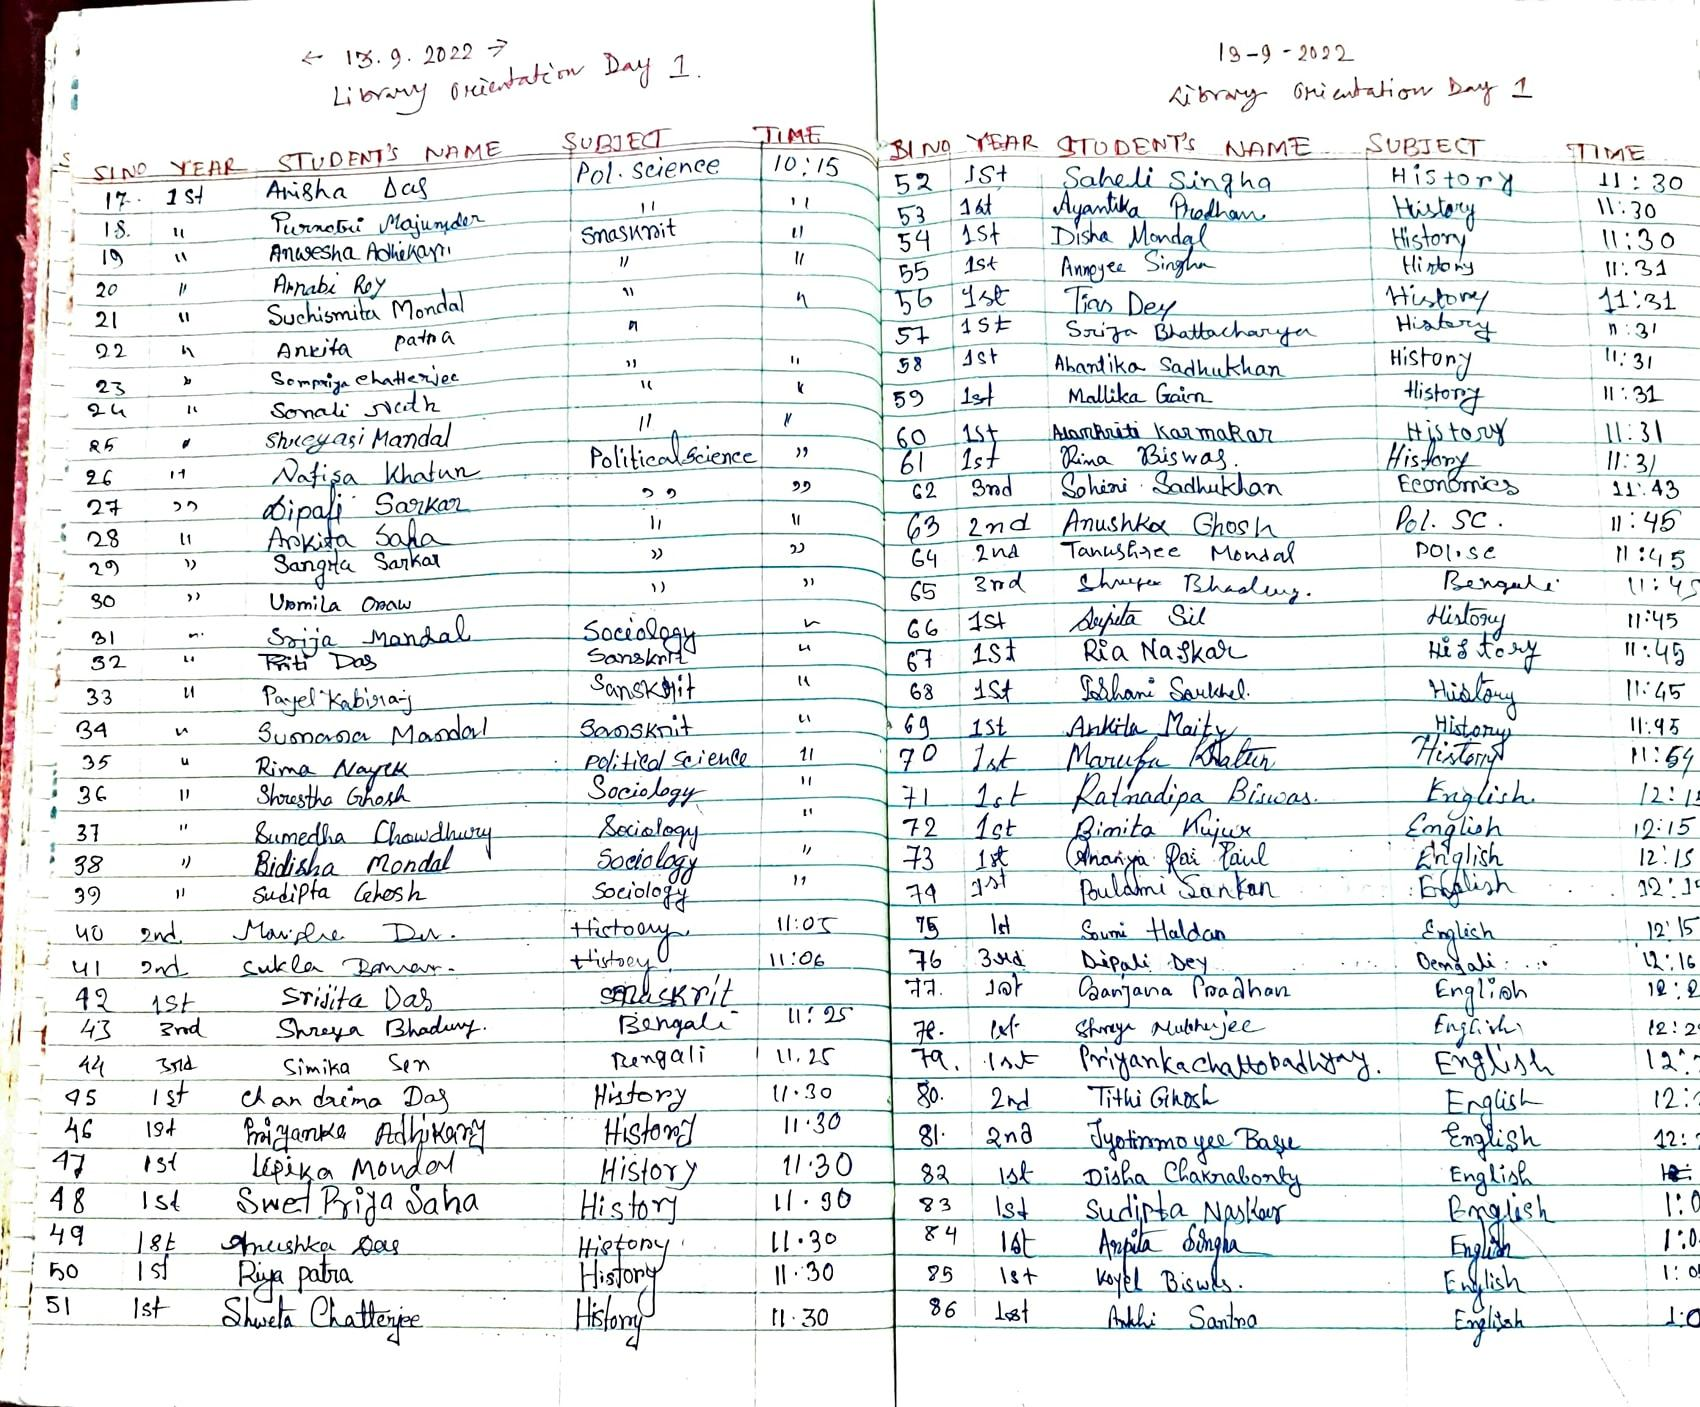 ← 13.9.2022 →
Library Orientation Day 1.
SI NO YEAR STUDENT'S NAME SUBJECT TIME
17. 1st Anisha Das Pol. Science 10:15
18. " Purnotri Majumder " "
19 " Anwesha Adhikary Snaskrit "
20 " Arnabi Roy " "
21 " Suchismita Mondal " "
22 " Ankita patra "
23 " Sompriya Chatterjee " "
24 " Sonali Nath " "
25 " Shreyasi Mandal " "
26 " Nafisa Khatun Political Science "
27 " Dipali Sarkar " "
28 " Ankita Saha " "
29 " Sangita Sarkar " "
30 " Urmila Oraw " "
31 " Srija Mandal Sociology "
32 " Priti Das Sanskrit "
33 " Payel Kabiraj Sanskrit "
34 " Sumana Mandal Sanskrit "
35 " Rima Nayek Political Science "
36 " Shrestha Ghosh Sociology "
37 " Sumedha Chowdhury Sociology "
38 " Bidisha Mondal Sociology "
39 " Sudipta Ghosh Sociology "
40 2nd History 11:05
41 2nd Sukla History 11:06
42 1st Srijita Das Sanaskrit
43 3rd Shreya Bhadury. Bengali 11:25
44 3rd Simika Sen Bengali 11.25
45 1st Chandrima Das History 11.30
46 1st Priyanka Adhikary History 11.30
47 1st Lipika Mondal History 11.30
48 1st Swet Priya Saha History 11.30
49 1st Anushka Das History 11.30
50 1st Riya patra History 11.30
51 1st Shweta Chatterjee History 11.30
13-9-2022
Library Orientation Day 1
SI NO YEAR STUDENT'S NAME SUBJECT TIME
52 1st Saheli Singha History 11:30
53 1st Ayantika Pradhan History 11:30
54 1st Disha Mondal History 11:30
55 1st Annoyee Singha History 11:31
56 1st Tias Dey History 11:31
57 1st Srija Bhattacharya History 11:31
58 1st Abantika Sadhukhan History 11:31
59 1st Mallika Gain History 11:31
60 1st Alankriti Karmakar History 11:31
61 1st Rina Biswas. History 11:31
62 3rd Sohini Sadhukhan Economics 11:43
63 2nd Anushka Ghosh Pol. SC. 11:45
64 2nd Tanushree Mondal Pol.sc 11:45
65 3rd Shreya Bhadury. Bengali 11:45
66 1st Arpita Sil History 11:45
67 1st Ria Naskar History 11:45
68 1st Ishani Sarkhel. History 11:45
69 1st Ankita Maity History 11:45
70 1st Marufa Khatun History 11:54
71 1st Ratnadipa Biswas. English. 12:15
72 1st Binita Kujur English 12:15
73 1st Ananya Rai Paul English 12:15
74 1st Poulami Sarkar English 12:15
75 1st Soumi Haldar English 12:15
76 3rd Dipali Dey Bengali 12:16
77. 1st Sanjana Pradhan English 12:2
78. 1st Shreya Mukherjee English 12:2
79. 1st Priyanka Chattopadhyay. English 12:
80. 2nd Tithi Ghosh English 12:
81. 2nd Jyotirmoyee Basu English 12:
82 1st Disha Chakraborty English
83 1st Sudipta Naskar English 1:0
84 1st Arpita Singha English 1:0
85 1st Koyel Biswas. English 1:0
86 1st Ankhi Santra English 1:0